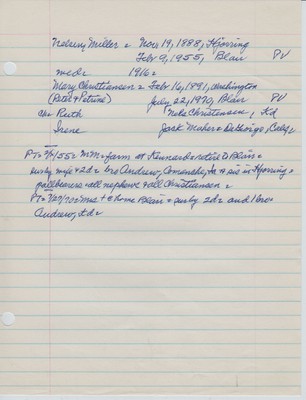 Nelsurg Miller = Nov 19, 1888, Hjorring
Feby 9, 1955, Blair PV
med = 1916 =
Mary Christiansen = Feb 16, 1891, Washington
(Peter & Petrine) July 22, 1970, Blair PV
ch = Ruth Nels Christensen, Kd
Irene Jack Maher = Calif
PT = 2/ /55 = MM = farm at Kennard = retire to Blair =
surby wife + 2d = bro Andrew, Comanche, Ia + sis in Hjorring =
pallbearers all nephews + all Christiansen =
PT = 7/27/70 = Mrs + @ home Blair = surby 2d = and 1 bro =
Andrew, Kd =